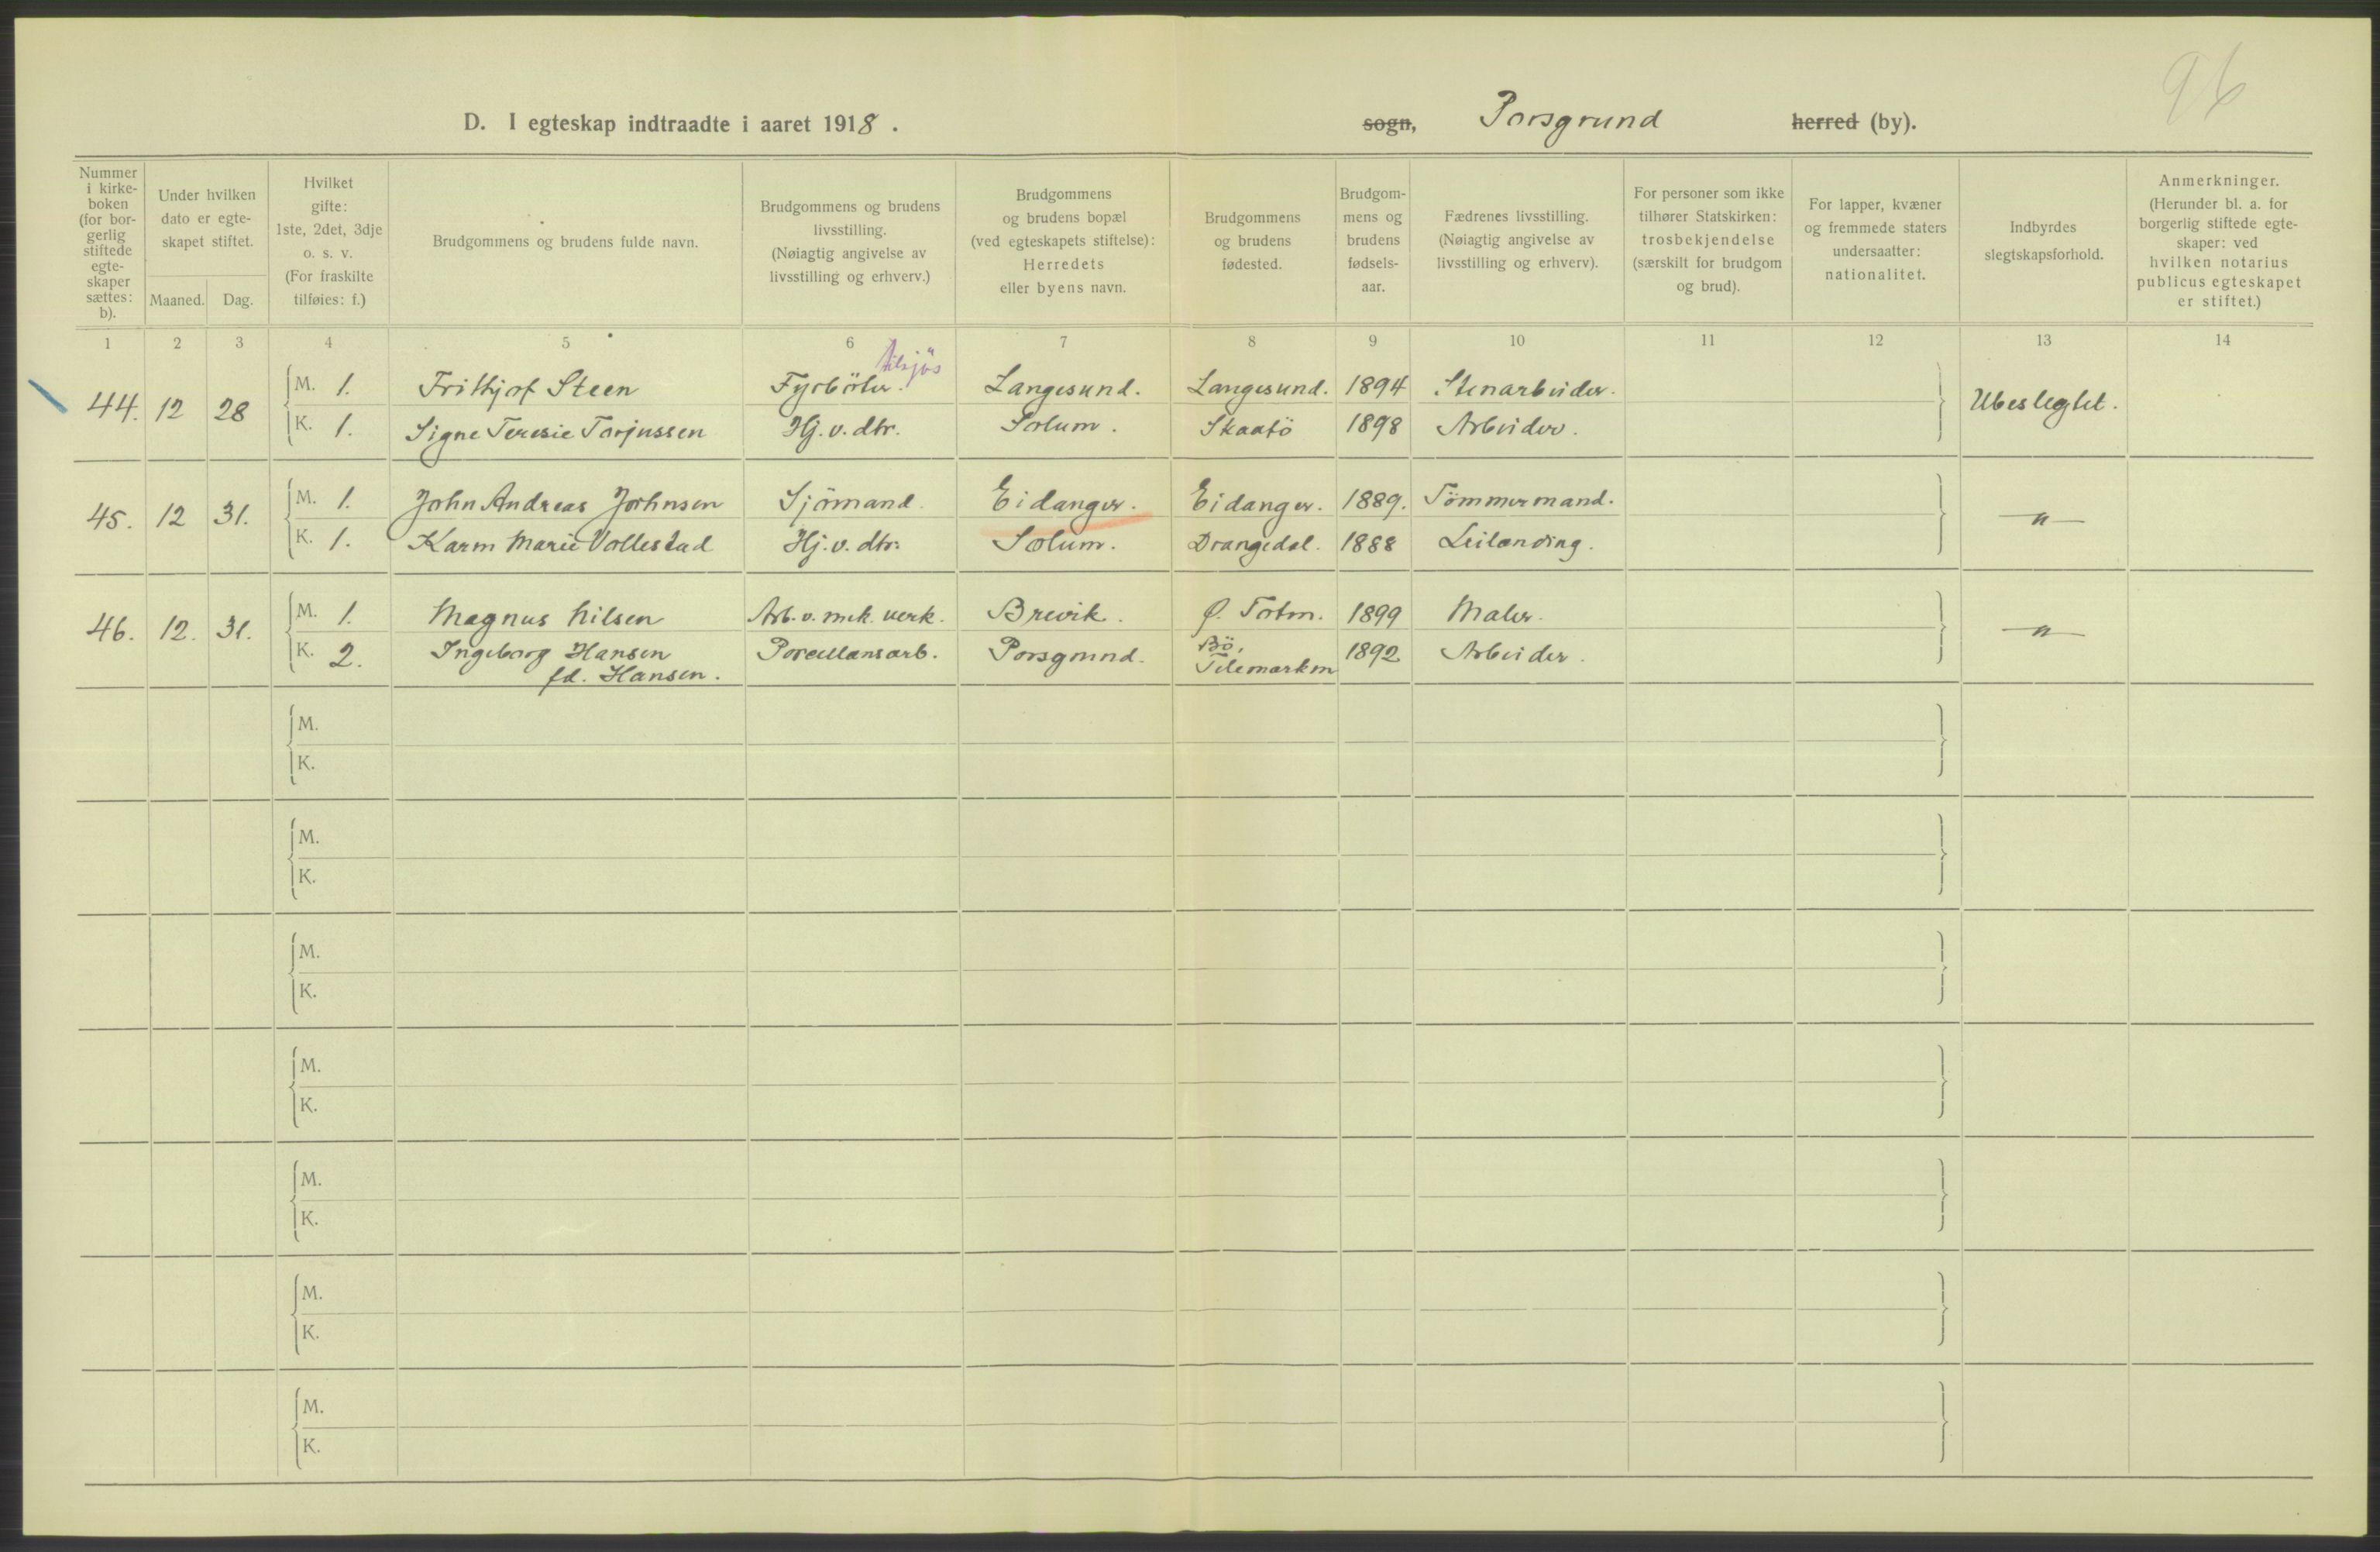 96
D. I egteskap indtraadte i aaret 1918. sogn, Porsgrund herred (by).
Nummer i kirke-boken (for bor-gerlig stiftede egte-skaper sættes: b).
Under hvilken dato er egte-skapet stiftet.
Maaned. Dag.
Hvilket gifte: 1ste, 2det, 3dje o. s. v. (For fraskilte tilføies: f.)
Brudgommens og brudens fulde navn.
Brudgommens og brudens livsstilling. (Nøiagtig angivelse av livsstilling og erhverv.)
Brudgommens og brudens bopæl (ved egteskapets stiftelse): Herredets eller byens navn.
Brudgommens og brudens fødested.
Brudgom-mens og brudens fødsels-aar.
Fædrenes livsstilling. (Nøiagtig angivelse av livsstilling og erhverv).
For personer som ikke tilhører Statskirken: trosbekjendelse (særskilt for brudgom og brud).
For lapper, kvæner og fremmede staters undersaatter: nationalitet.
Indbyrdes slegtskapsforhold.
Anmerkninger. (Herunder bl. a. for borgerlig stiftede egte-skaper: ved hvilken notarius publicus egteskapet er stiftet.)
1 2 3 4 5 6 7 8 9 10 11 12 13 14
tilsjøs
44. 12 28 M. 1. Frithjof Steen Fyrböter. Langesund. Langesund. 1894 Stenarbeider. Ubeslegtet.
K. 1. Signe Teresie Torjussen Hj. v. dtr. Solum. Skaatö 1898 Arbeider.
45. 12 31. M. 1. John Andreas Johnsen Sjömand. Eidanger. Eidanger. 1889. Tömmermand. — " —
K. 1. Karen Marie Vollestad Hj. v. dtr. Solum. Drangedal. 1888 Leilænding.
46. 12. 31. M. 1. Magnus Nilsen Arb. v. mek. verk. Brevik. Ø. Toten. 1899 Maler. — " —
K. 2. Ingeborg Hansen Porcellansarb. Porsgrund. Bö, 1892 Arbeider.
fd. Hansen. Telemarken
M.
K.
M.
K.
M.
K.
M.
K.
M.
K.
M.
K.
M.
K.